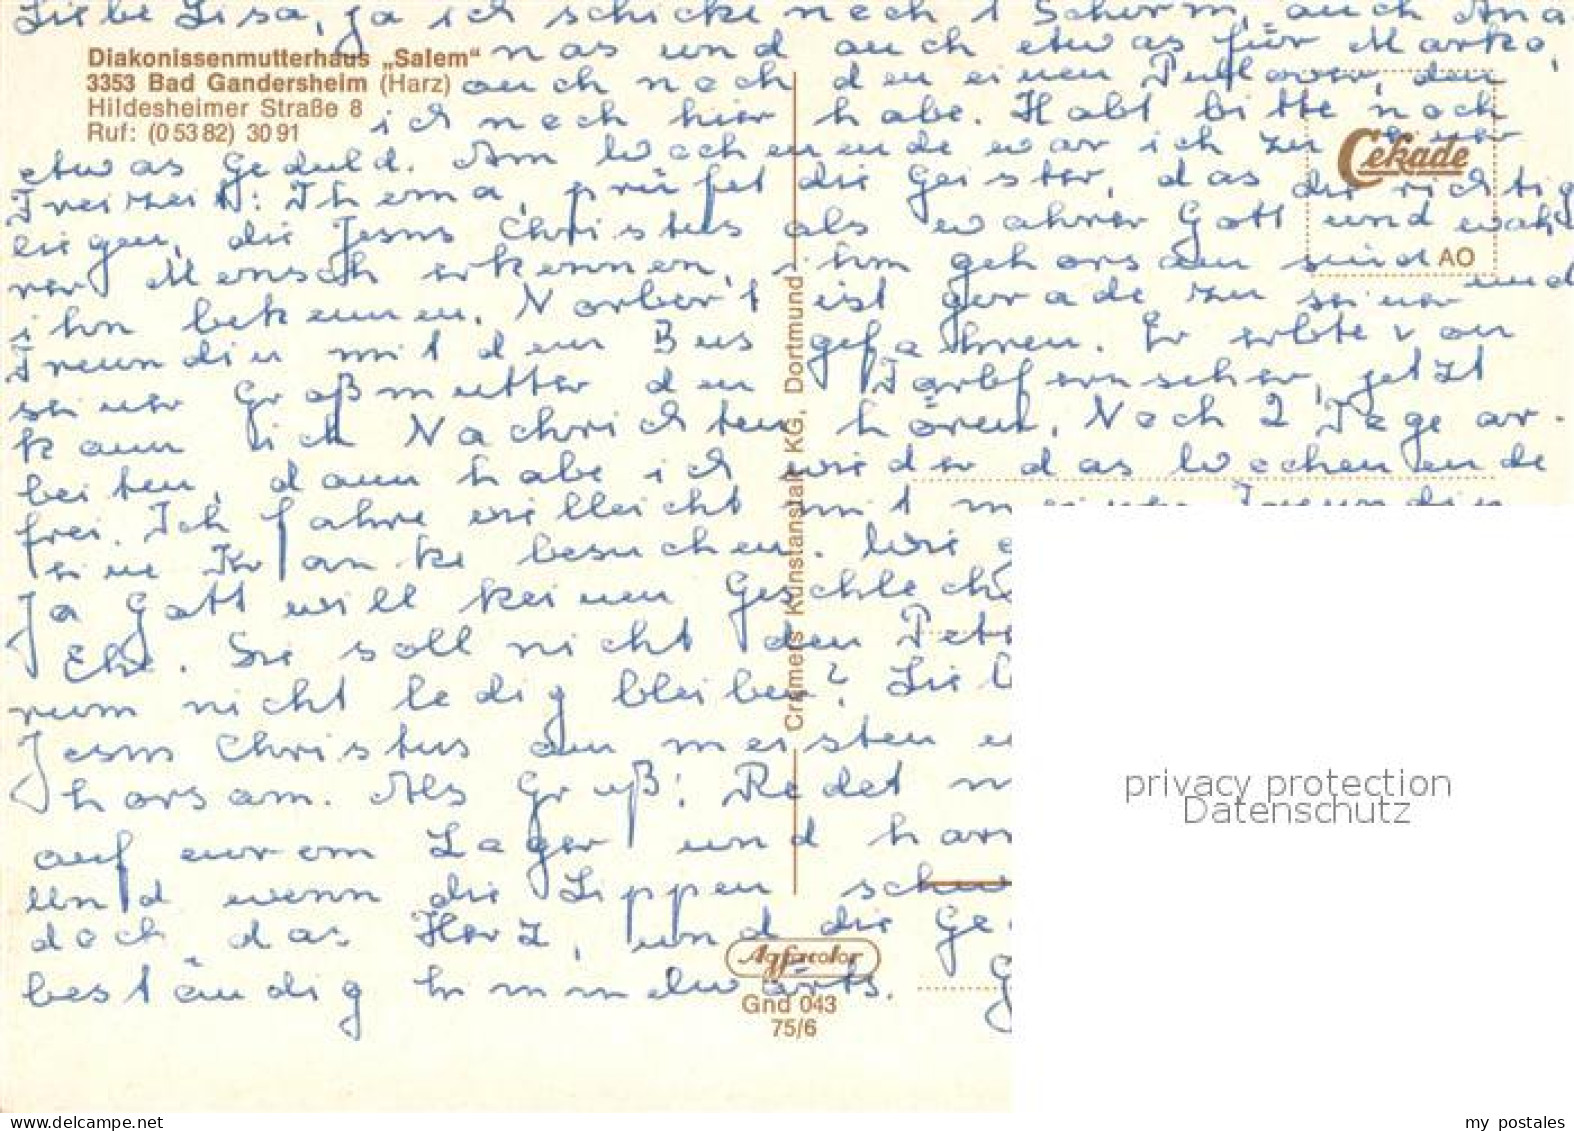 Liebe Lisa, ja ich schicke noch 1 Schirm, auch Ana-
nas und auch etwas für Marko,
auch noch den einen Pullover, den
ich noch hier habe. Habt bitte noch
etwas Geduld. Am Wochenende war ich zu einer
Freizeit: Thema, prüfet die Geister, das die richtig
liegen, die Jesus Christus als wahrer Gott und wah-
rer Mensch erkennen, ihm gehorsam sind und
ihn bekennen. Norbert ist gerade zu seiner
Freundin mit dem Bus gefahren. Er erbte von
seiner Großmutter den Farbfernseher, jetzt
kann ich Nachrichten hören. Noch 2 Tage ar-
beiten, dann habe ich wieder das Wochenende
frei. Ich fahre vielleicht mit meiner Freundin
eine Kranke besuchen. Wie
Ja Gott will keinen Geschlech
Ehe. Sie soll nicht den Pet
rum nicht ledig bleiben? Lieb
Jesus Christus am meisten
horsam. Als Gruß: Redet
auf eurem Lager und harr
Und wenn die Lippen schw
doch das Herz, und die Ge
beständig himmelwärts. G
Diakonissenmutterhaus „Salem“
3353 Bad Gandersheim (Harz)
Hildesheimer Straße 8
Ruf: (0 53 82) 30 91
Cramers Kunstanstalt KG, Dortmund
Cekade
AO
Agfacolor
Gnd 043
75/6
privacy protection
Datenschutz
www.delcampe.net
my_postales